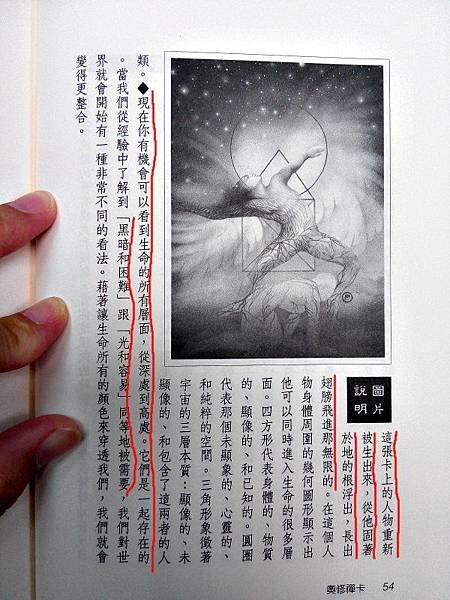 圖片
說明
這張卡上的人物重新
被生出來，從他固著
於地的根浮出，長出
翅膀飛進那無限的。在這個人
物身體周圍的幾何圖形顯示出
他可以同時進入生命的很多層
面。四方形代表身體的、物質
的、顯像的、和已知的。圓圈
代表那個未顯象的、心靈的、
和純粹的空間。三角形象徵著
宇宙的三層本質：顯像的、未
顯像的、和包含了這兩者的人
類。◆現在你有機會可以看到生命的所有層面，從深處到高處。它們是一起存在的
。當我們從經驗中了解到「黑暗和困難」跟「光和容易」同等地被需要，我們對世
界就會開始有一種非常不同的看法。藉著讓生命所有的顏色來穿透我們，我們就會
變得更整合。
奧修禪卡 54